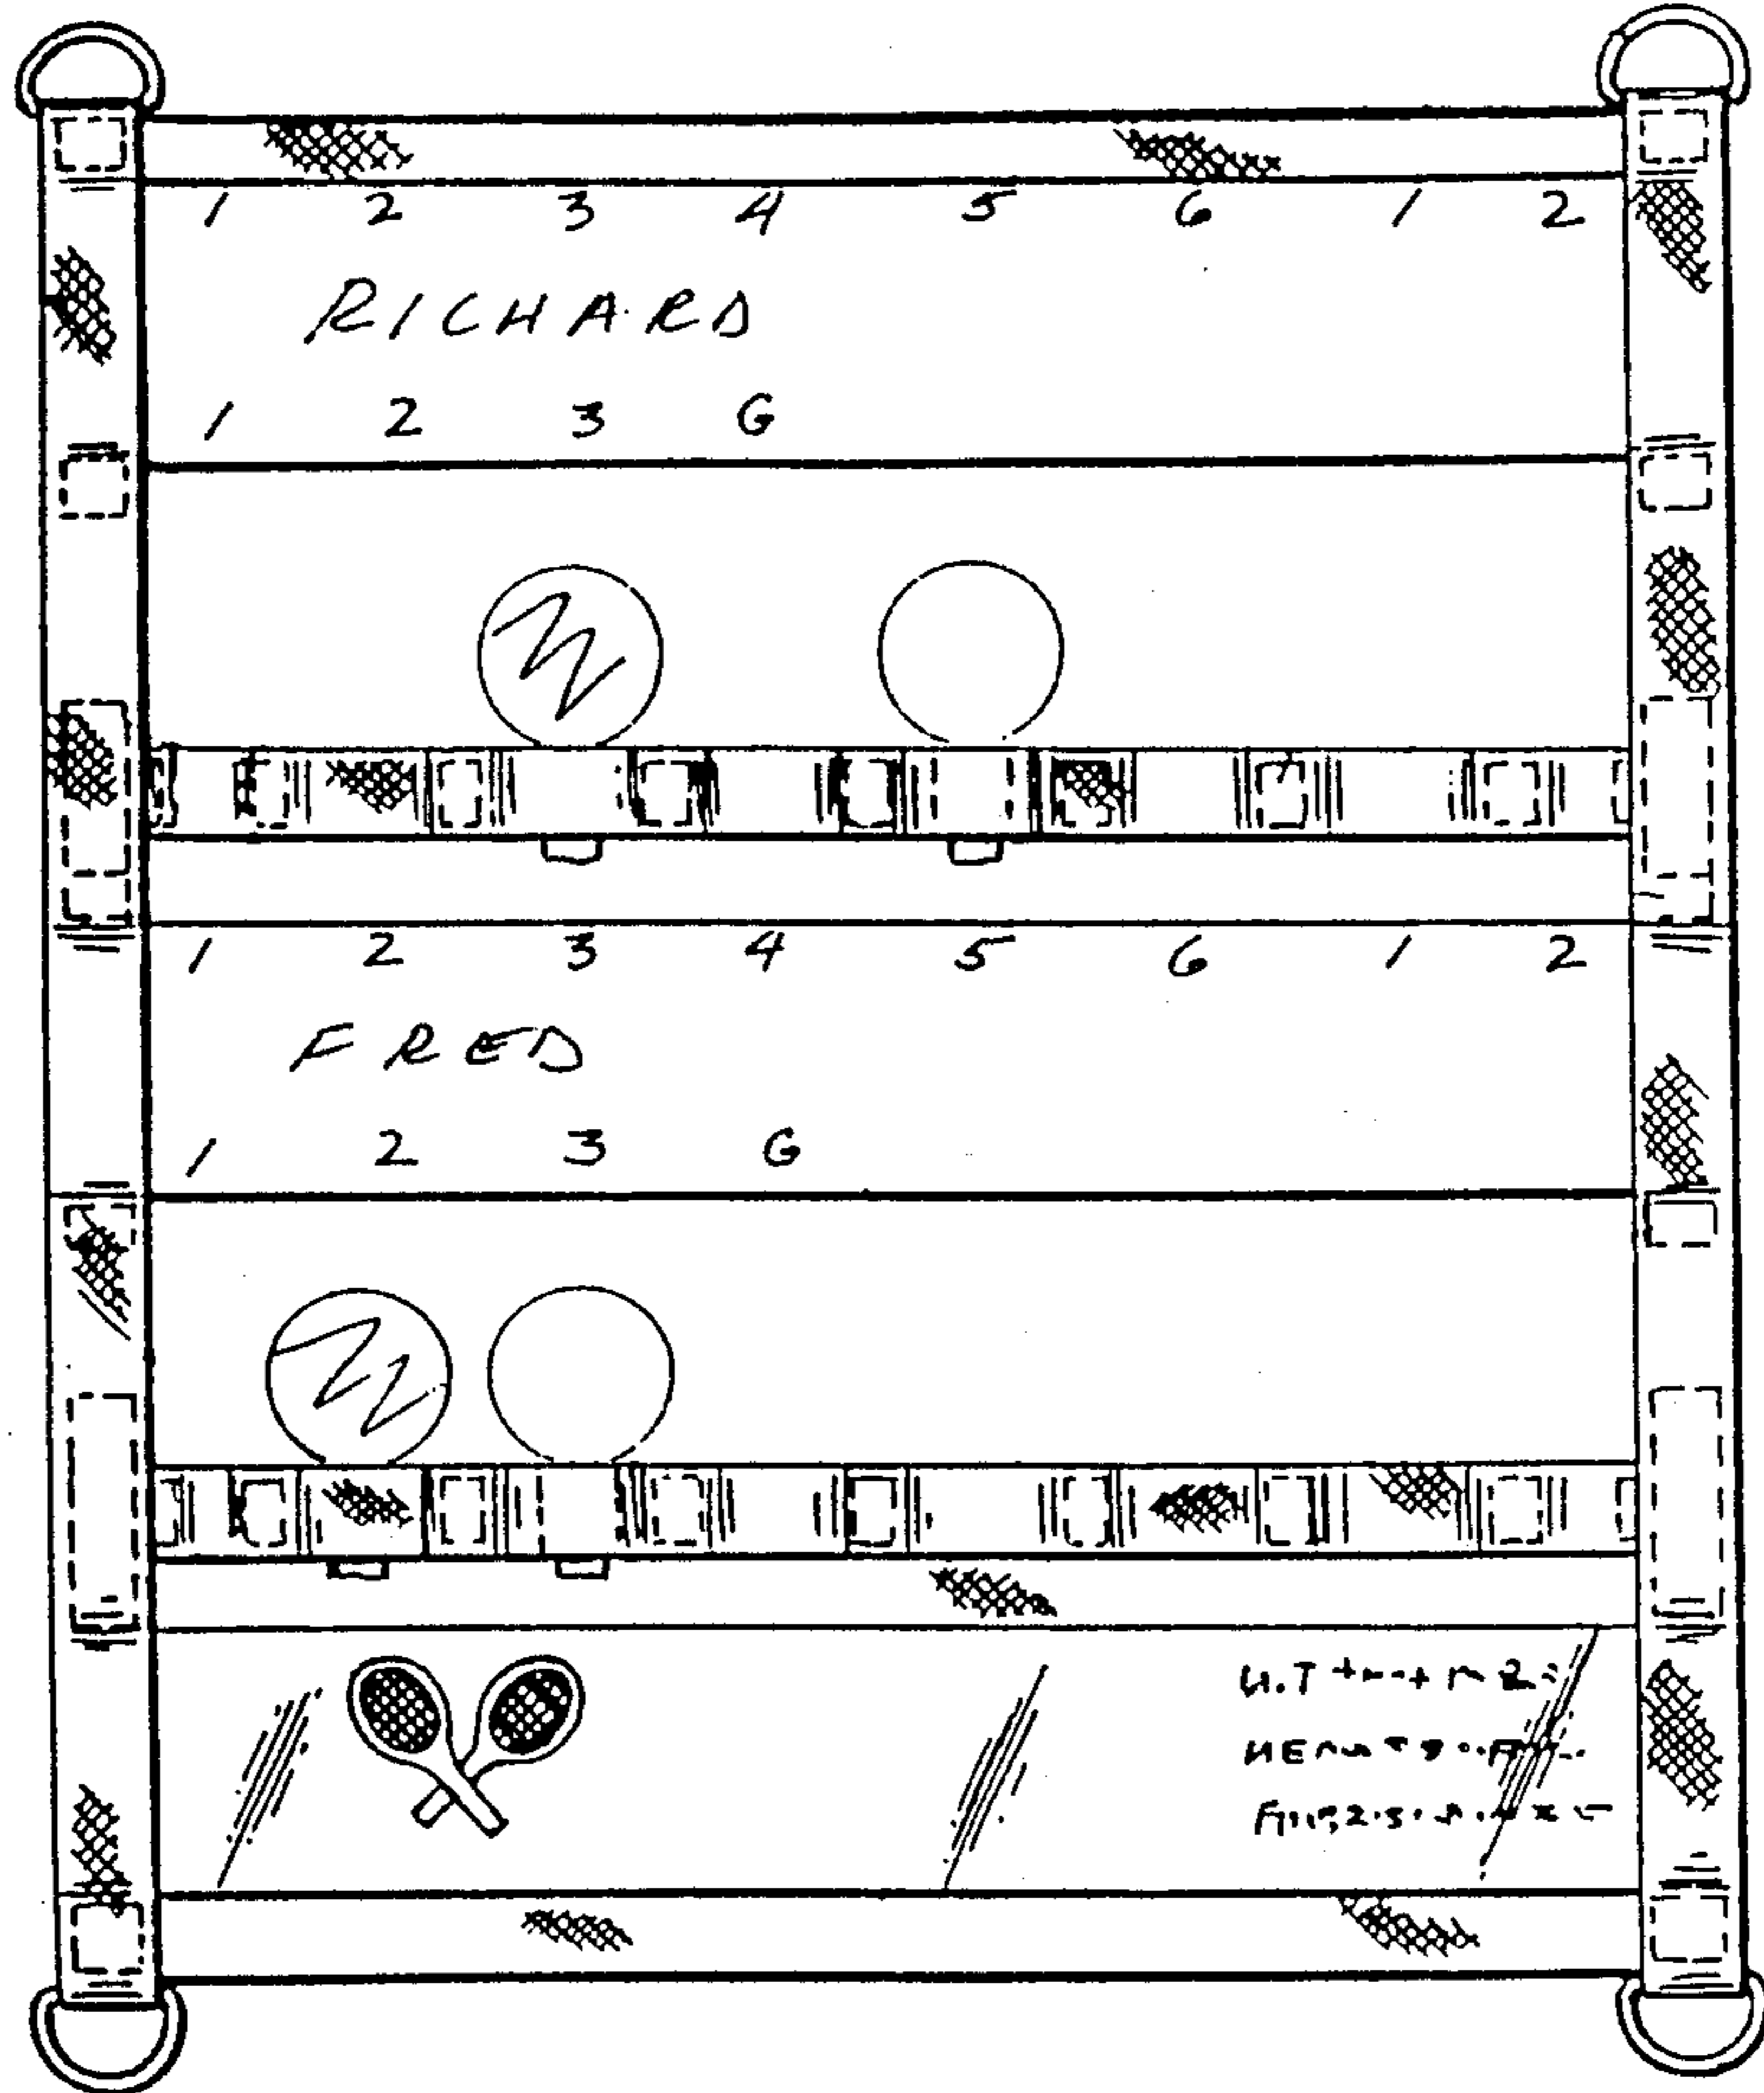 1 2 3 4 5 6 1 2
RICHARD
1 2 3 G
1 2 3 4 5 6 1 2
FRED
1 2 3 G